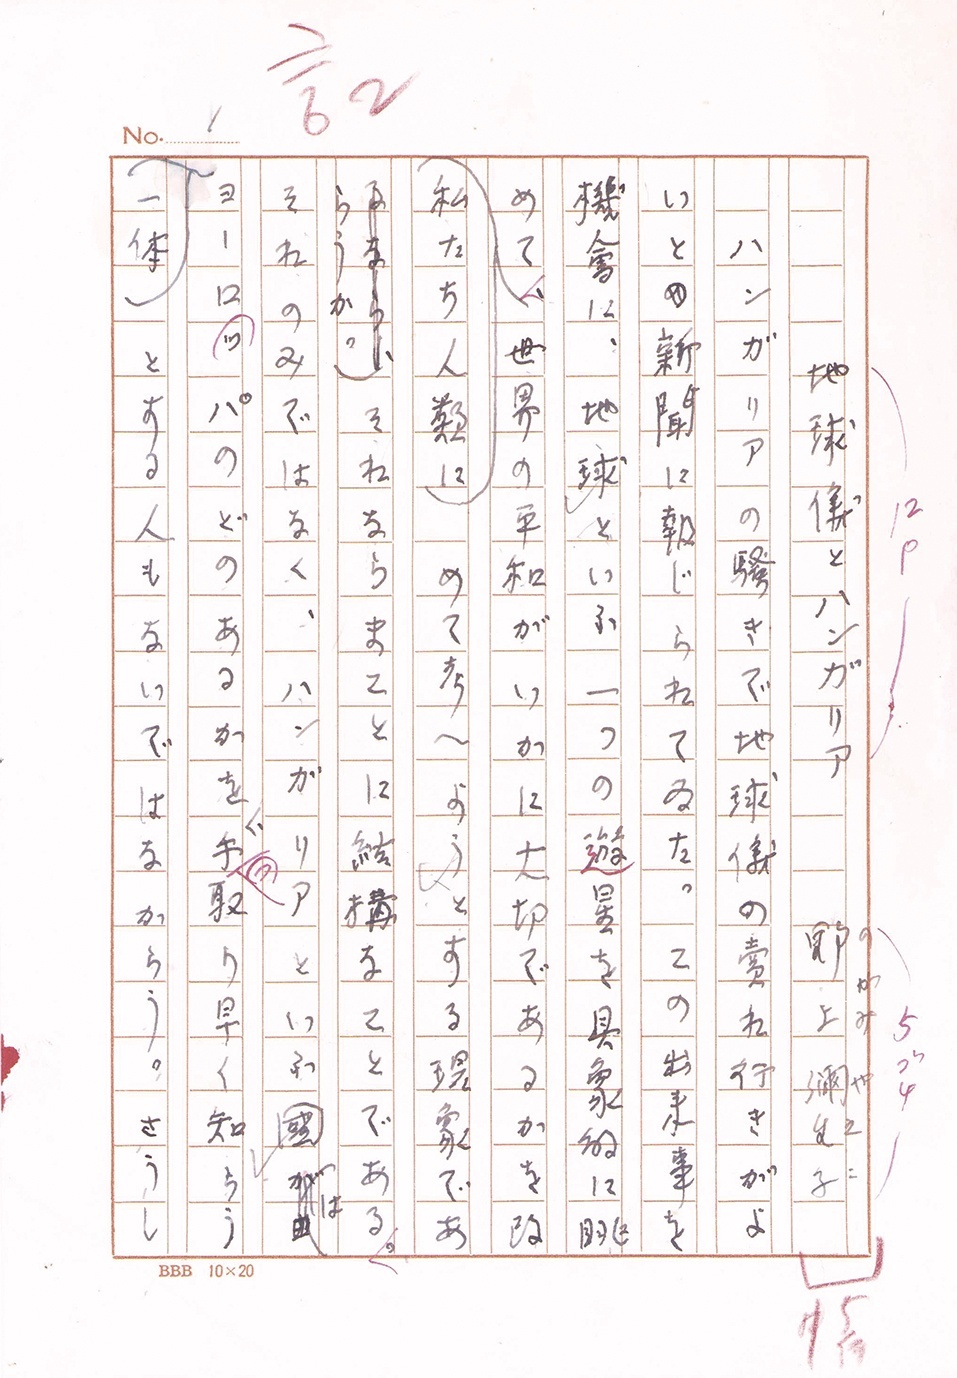 二/6 2
No. 1
地球儀とハンガリア
野上彌生子
のがみやえこ
12P
5ゴ4
ハンガリアの騒きで地球儀の売れ行きがよ
いとの新聞に報じられてゐた。この出来事を
機會に、地球といふ一つの遊星を具象的に眺
めて世界の平和がいかに大切であるかを改
めて考へようとする現象であ
私たち人類に
るなら、
らうか。それならまことに結構なことである。
それのみではなく、ハンガリアといふ國は
ヨーロッパのどのあるかを手取り早く知らう
とする人もないではなからう。さうし
一体
BBB 10×20